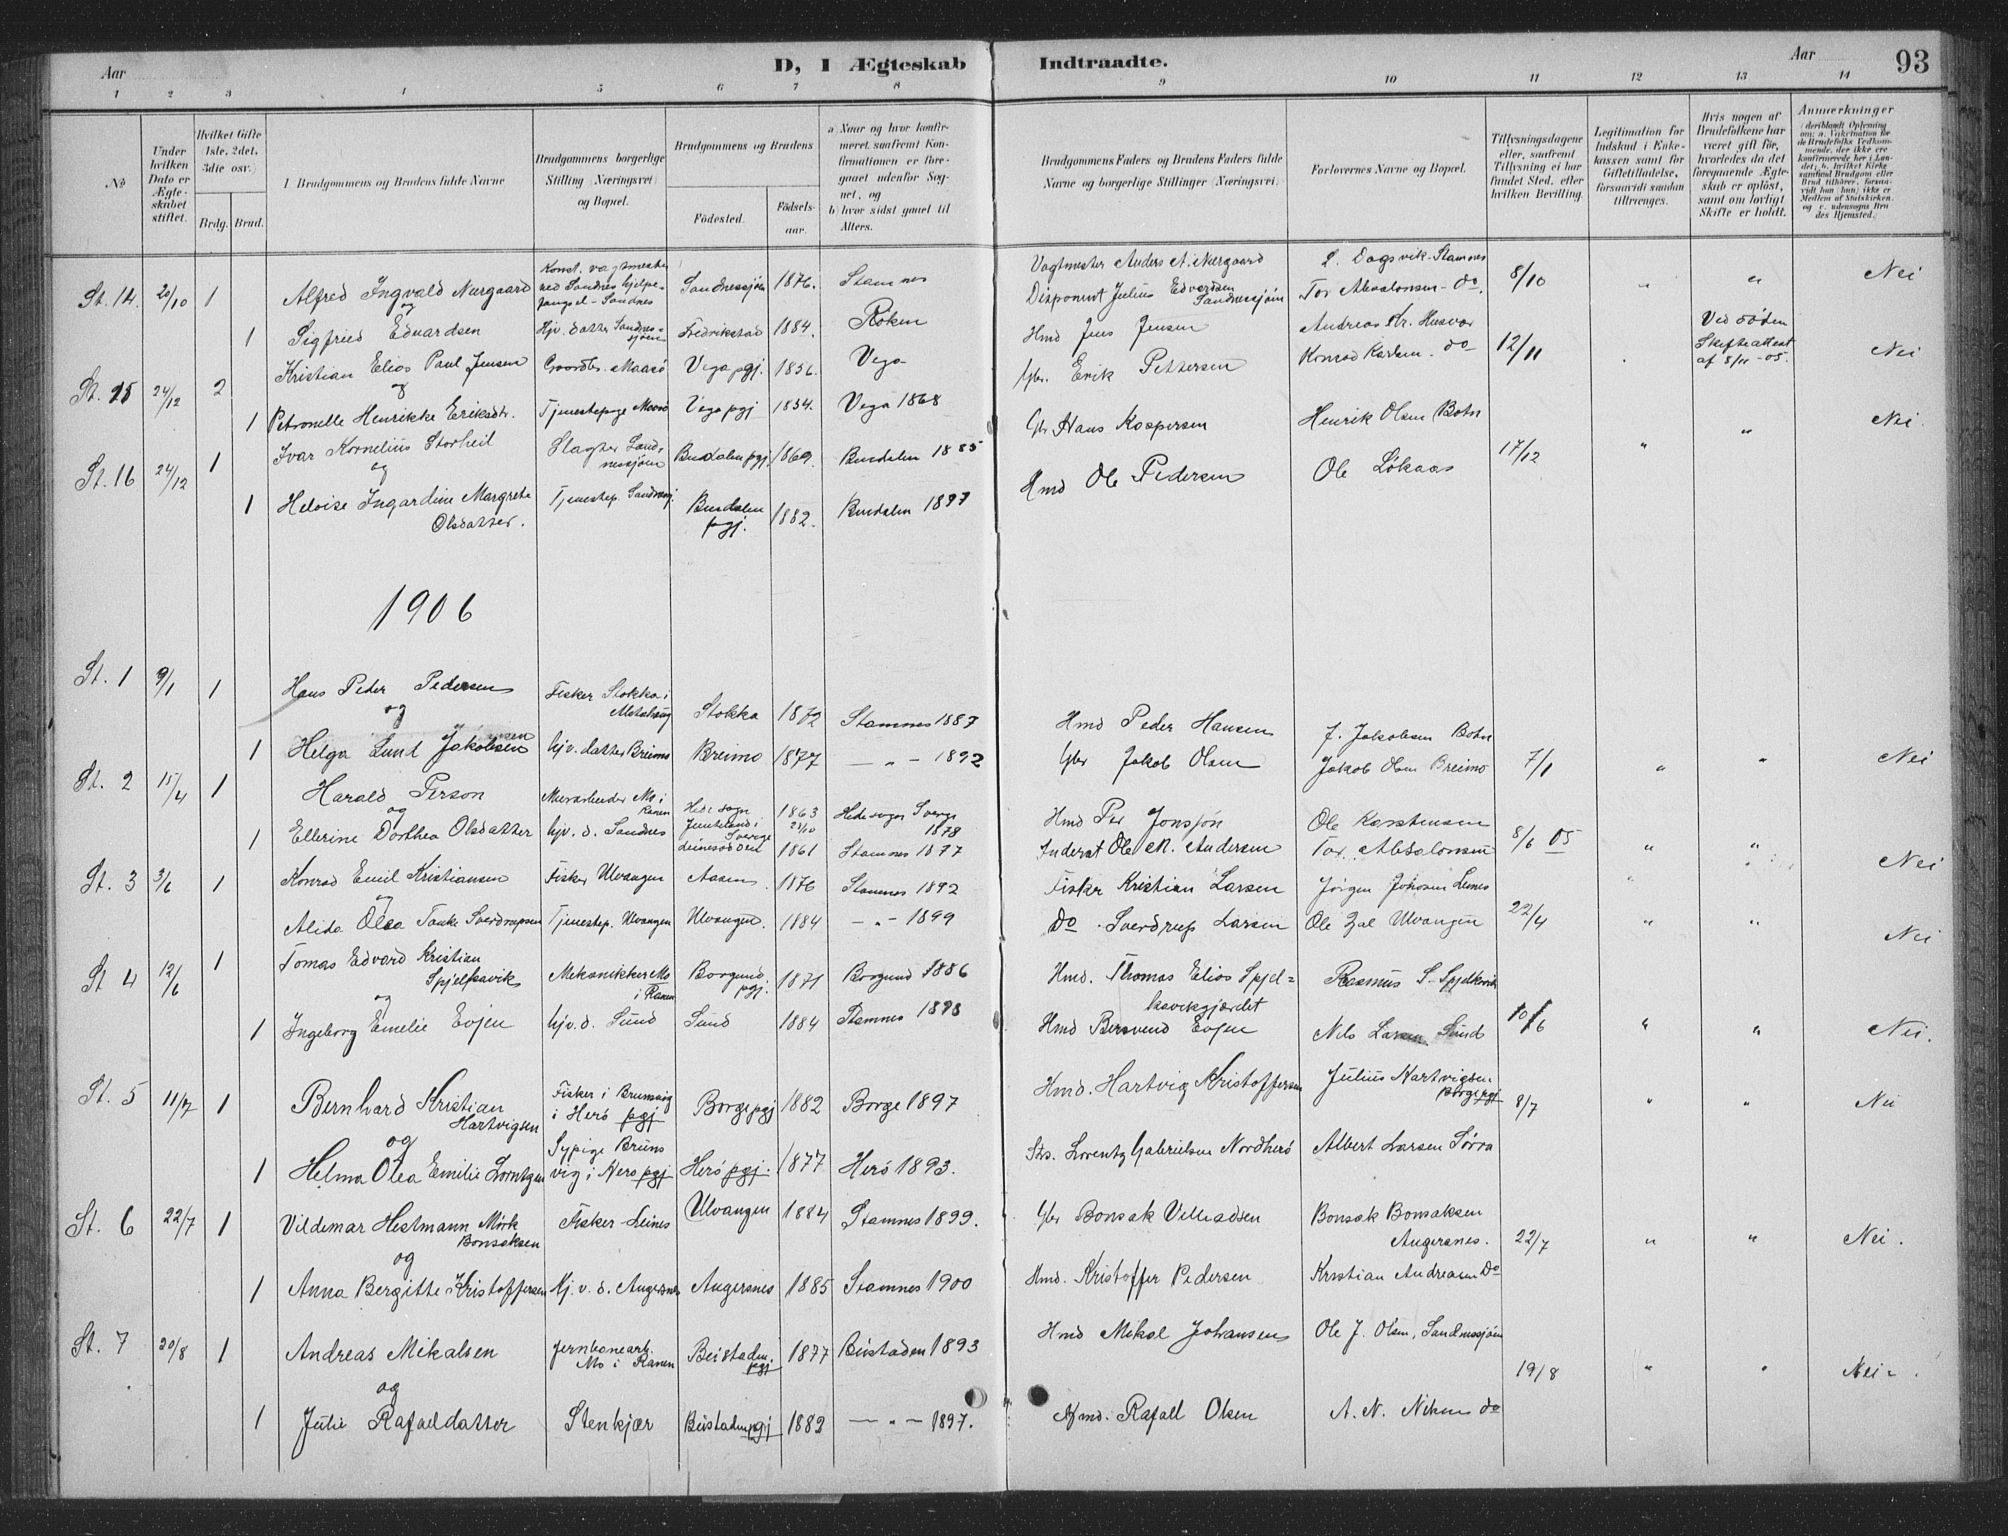 Aar
D, I Ægteskab Indtraadte.
Aar
93
1 2 3 4 5 6 7 8 9 10 11 12 13 14
No
Under hvilken Dato er Ægteskabet stiftet.
Hvilket Gifte 1ste, 2det, 3die osv.)
Brdg. Brud.
1 Brudgommens og Brudens fulde Navne
Brudgommens borgerlige Stilling (Næringsvei) og Bopæl.
Brudgommens og Brudens
Födested.
Födselsaar.
a) Naar og hvor konfirmeret, saafremt Konfirmationen er foregaaet udenfor Sognet, og
b) hvor sidst gaaet til Alters.
Brudgommens Faders og Brudens Faders fulde Navne og borgerlige Stillinger (Næringsvei).
Forlovernes Navne og Bopæl.
Tillysningsdagene eller, saafremt Tillysning ei har fundet Sted, efter hvilken Bevilling.
Legitimation for Indskud i Enkekassen samt for Giftetilladelse, forsaavidt saadan tiltrænges.
Hvis nogen af Brudefolkene har været gift før, hvorledes da det foregaaende Ægteskab er opløst, samt om lovligt Skifte er holdt.
Anmærkninger
St. 14. 20/10 1 Alfred Ingvald Nærgaard Konst. vagtmester ved Sandnes hjelpefængsel - Sandnes Sandnessjøen 1876. Stamnes Vagtmester Anders A. Nærgaard L. Dagsvik - Stamnes 8/10 " " Nei
og
1 Sigfried Edvardsen Hjv. datter Sandnessjøen Fredrikstad 1884. Röken Disponent Julius Edvardsen Sandnessjøen Tor Absalonsen - do.
St. 15 24/12 2 Kristian Elios Paul Jensen Gaardbr. Maasö Vega pgj. 1836. Vega Hmd Jens Jensen Andreas Hr. Husvær 12/11 Ved döden Skifteattest af 8/11 - 05. Nei
og
1 Petronelle Henrikke Eriksdtr. Tjenestepige Maasö Vega pgj 1834. Vega 1868 Gbr. Erik Pettersen Konrad Karlsen. do
St. 16 24/12 1 Ivar Kornelius Storheil Slagter Sandnessjøen Bindalen pgj. 1869. Bindalen 1885 Gbr Hans Kaspersen Henrik Olsen Botn 17/12 " " Nei.
og
1 Heloise Ingardine Margrete Olsdatter. Tjenestep. Sandnessj Bindalen pgj. 1882. Bindalen 1897 Hmd Ole Pedersen Ole Løkaas
1906
St. 1 9/1 1 Hans Peder Pedersen Fisker Stokka i Alstahaug Stokka 1872 Stamnes 1887 Hmd Peder Hansen J. Jakobsen Botn
og
1 Helga Lund Jakobsen hjv. datter Breimo Breimo 1877 — " — 1892 Gbr Jakob Olsen Jakob Olsen Breimo 7/1 " " Nei
St. 2 15/4 1 Harald Person Murarbeider Mo i Ranen Hede sogn Jemteland i Sverige 1863 23/10 Hede sogn Sverge 1878 Hmd Per Jonsjön Ole Karstensen 8/6 05 " " Nei
og
1 Ellerine Dorthea Olsdatter hjv. d. Sandnes Leinesodden 1861 Stamnes 1877 Inderst Ole M. Andersen Tor Absalonsen
St. 3 3/6 1 Konrad Emil Kristiansen Fisker Ulvangen Aasen 1876 Stamnes 1892 Fisker Kristian Larsen Jörgen Johnsen Leines 22/4 " " Nei
og
Alida Olea Tanke Sverdrupsen Tjenestep. Ulvangen Ulvangen. 1884 — " — 1899 Do. Sverdrup Larsen Ole Zal Ulvangen
St 4 12/6 1 Tomas Edvard Kristian Spjelkavik Mekaniker Mo i Ranen Borgund pgj. 1871 Borgund 1886 Hmd. Thomas Elias Spjelkavikgjærdet Rasmus S. Spjelkavik 10/6 " " Nei.
og
1 Ingeborg Emelie Evjen hjv. d. Sund Sund 1884 Stamnes 1898 Hmd Bersvend Evjen Nels Larsen Sund
St. 5 11/7 1 Bernhard Kristian Hartvigsen Fisker i Brunsvig i Herö pgj Borge pgj 1882 Borge 1897 Hmd. Hartvig Kristoffersen Julius Hartvigsen Borge pgj 8/7 " " Nei
og
1 Helma Olea Emilie Lorntzen Sypige Brunsvig i Herö pgj Herö pgj. 1877 Herö 1893. Lorentz Gabrielsen Nordherö Albert Larsen Sörra
St. 6 22/7 1 Vildemar Hestmann Mörk Bonsaksen Fisker - Leines Ulvangen 1884 Stamnes 1899. Gbr Bonsak Villiadsen Bonsak Bonsaksen Angersnes. 22/7 " " Nei.
og
1 Anna Bergitte Kristoffersen Hj. v. d. Angersnes Angersnes 1885 Stamnes 1900 Hmd. Kristoffer Pedersen Kristian Andreasen Do
St. 7 20/8 1 Andreas Mikalsen Jernbanearb. Mo i Ranen Beistaden. pgj 1877 Beistaden 1893 Hmd Mikal Johansen Ole J. Olsen, Sandnessjøen 19/8 " " Nei.
og
1 Julie Rafaeldatter Stenkjær Beistaden pgj 1882 — " — 1897. Hmd. Rafael Olsen A. N. Nilsen do